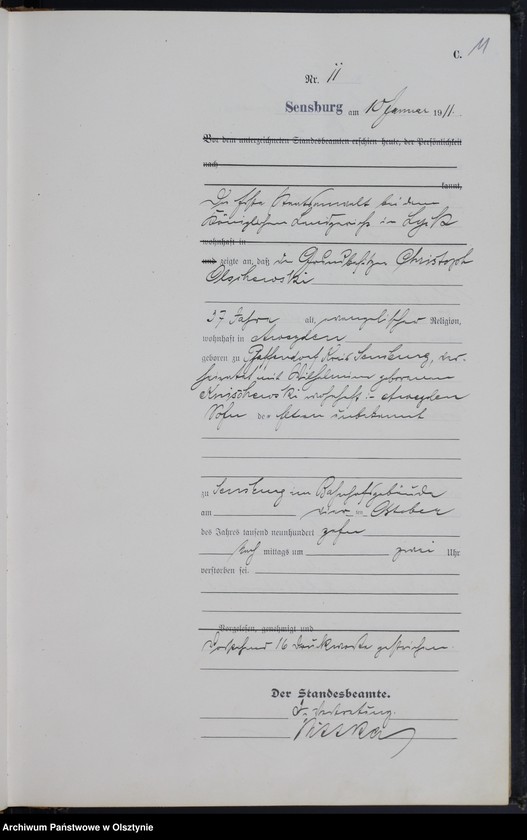 C. 11
Nr. 11
Sensburg am 10 Januar 1911.
Vor dem unterzeichneten Standesbeamten erschien heute, der Persönlichkeit
nach
kannt,
Der Erste Staatsanwalt bei dem
Königlichen Landgericht in Lyck
wohnhaft in
und zeigte an, daß der Grundbesitzer Christoph
Olschewski
57 Jahre alt, evangelischer Religion,
wohnhaft in Aweyden
geboren zu Kreis Sensburg, ver-
heiratet mit Wilhelmine geborenen
wohnhaft in Aweyden
Sohn der Eltern unbekannt
zu Sensburg im Bahnhofsgebäude
am Oktober
des Jahres tausend neunhundert zehn
Nach mittags um zwei Uhr
verstorben sei.
Vorgelesen, genehmigt und
Vorstehend 16 Druckworte gestrichen.
Der Standesbeamte.
In Vertretung.
Archiwum Państwowe w Olsztynie